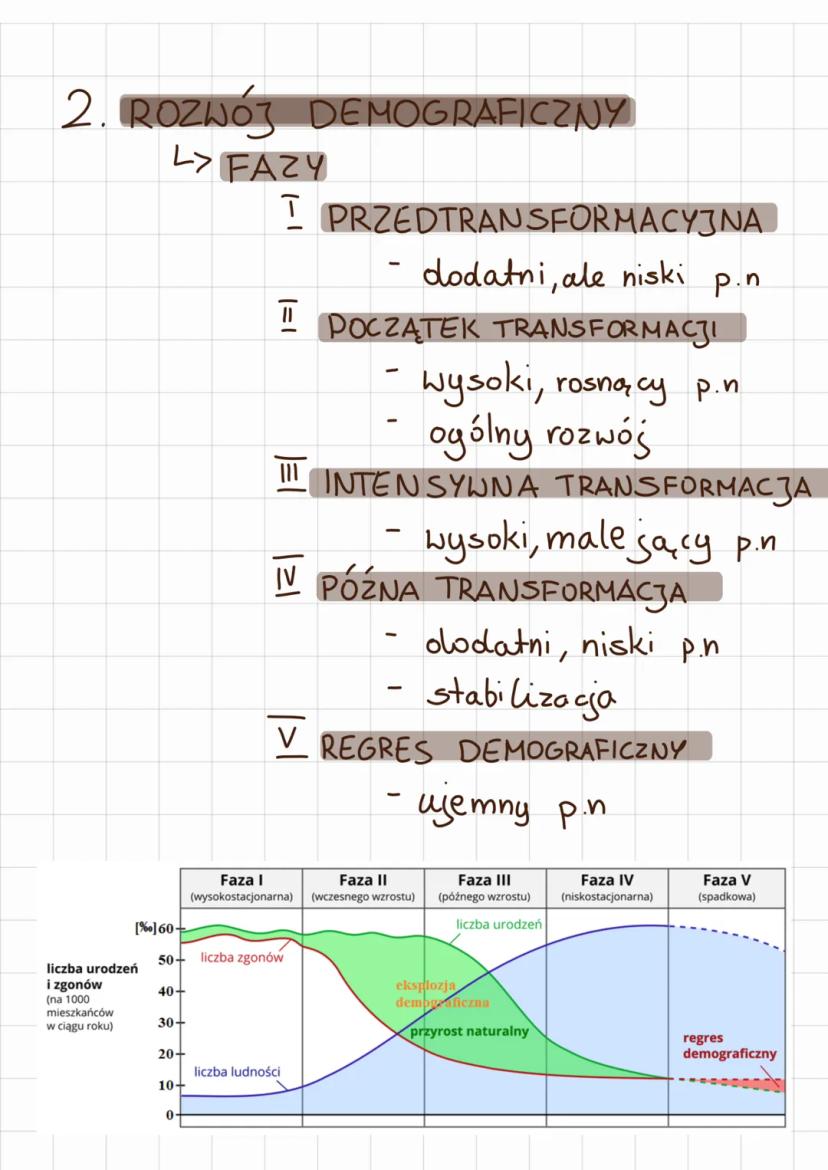 2. ROZWÓJ DEMOGRAFICZNY
↳ FAZY
I PRZEDTRANSFORMACYJNA
- dodatni, ale niski p.n
II POCZĄTEK TRANSFORMACJI
- wysoki, rosnący p.n
- ogólny rozwój
III INTENSYWNA TRANSFORMACJA
- wysoki, malejący p.n
IV PÓŹNA TRANSFORMACJA
- dodatni, niski p.n
- stabilizacja
V REGRES DEMOGRAFICZNY
- ujemny p.n
Faza I Faza II Faza III Faza IV Faza V
(wysokostacjonarna) (wczesnego wzrostu) (późnego wzrostu) (niskostacjonarna) (spadkowa)
[‰] 60
50
40
30
20
10
0
liczba urodzeń
i zgonów
(na 1000
mieszkańców
w ciągu roku)
liczba urodzeń
liczba zgonów
eksplozja
demograficzna
przyrost naturalny
regres
demograficzny
liczba ludności